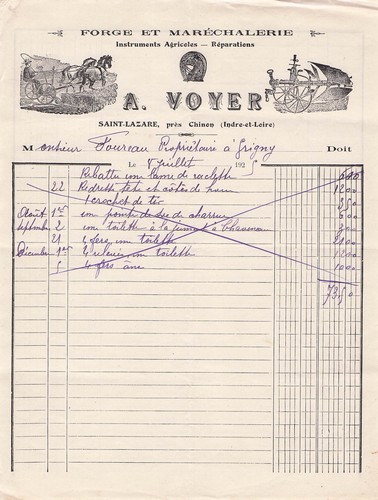 FORGE ET MARÉCHALERIE
Instruments Agricoles — Réparations
A. VOYER
SAINT-LAZARE, près Chinon (Indre-et-Loire)
Monsieur Foureau Propriétaire à Grigny Doit
Le juillet 1925
Rebattu une lame de raclette
22 Redressé tête et côtés de 1200
1 crochet de fer 350
Août 1er une pointe de de charrue 600
septembre 2 un toilette à la jument à 300
21 4 fers un toilette 2100
Décembre 1er 4 relevés un toilette 1200
5 4 fers âne 1000
7350